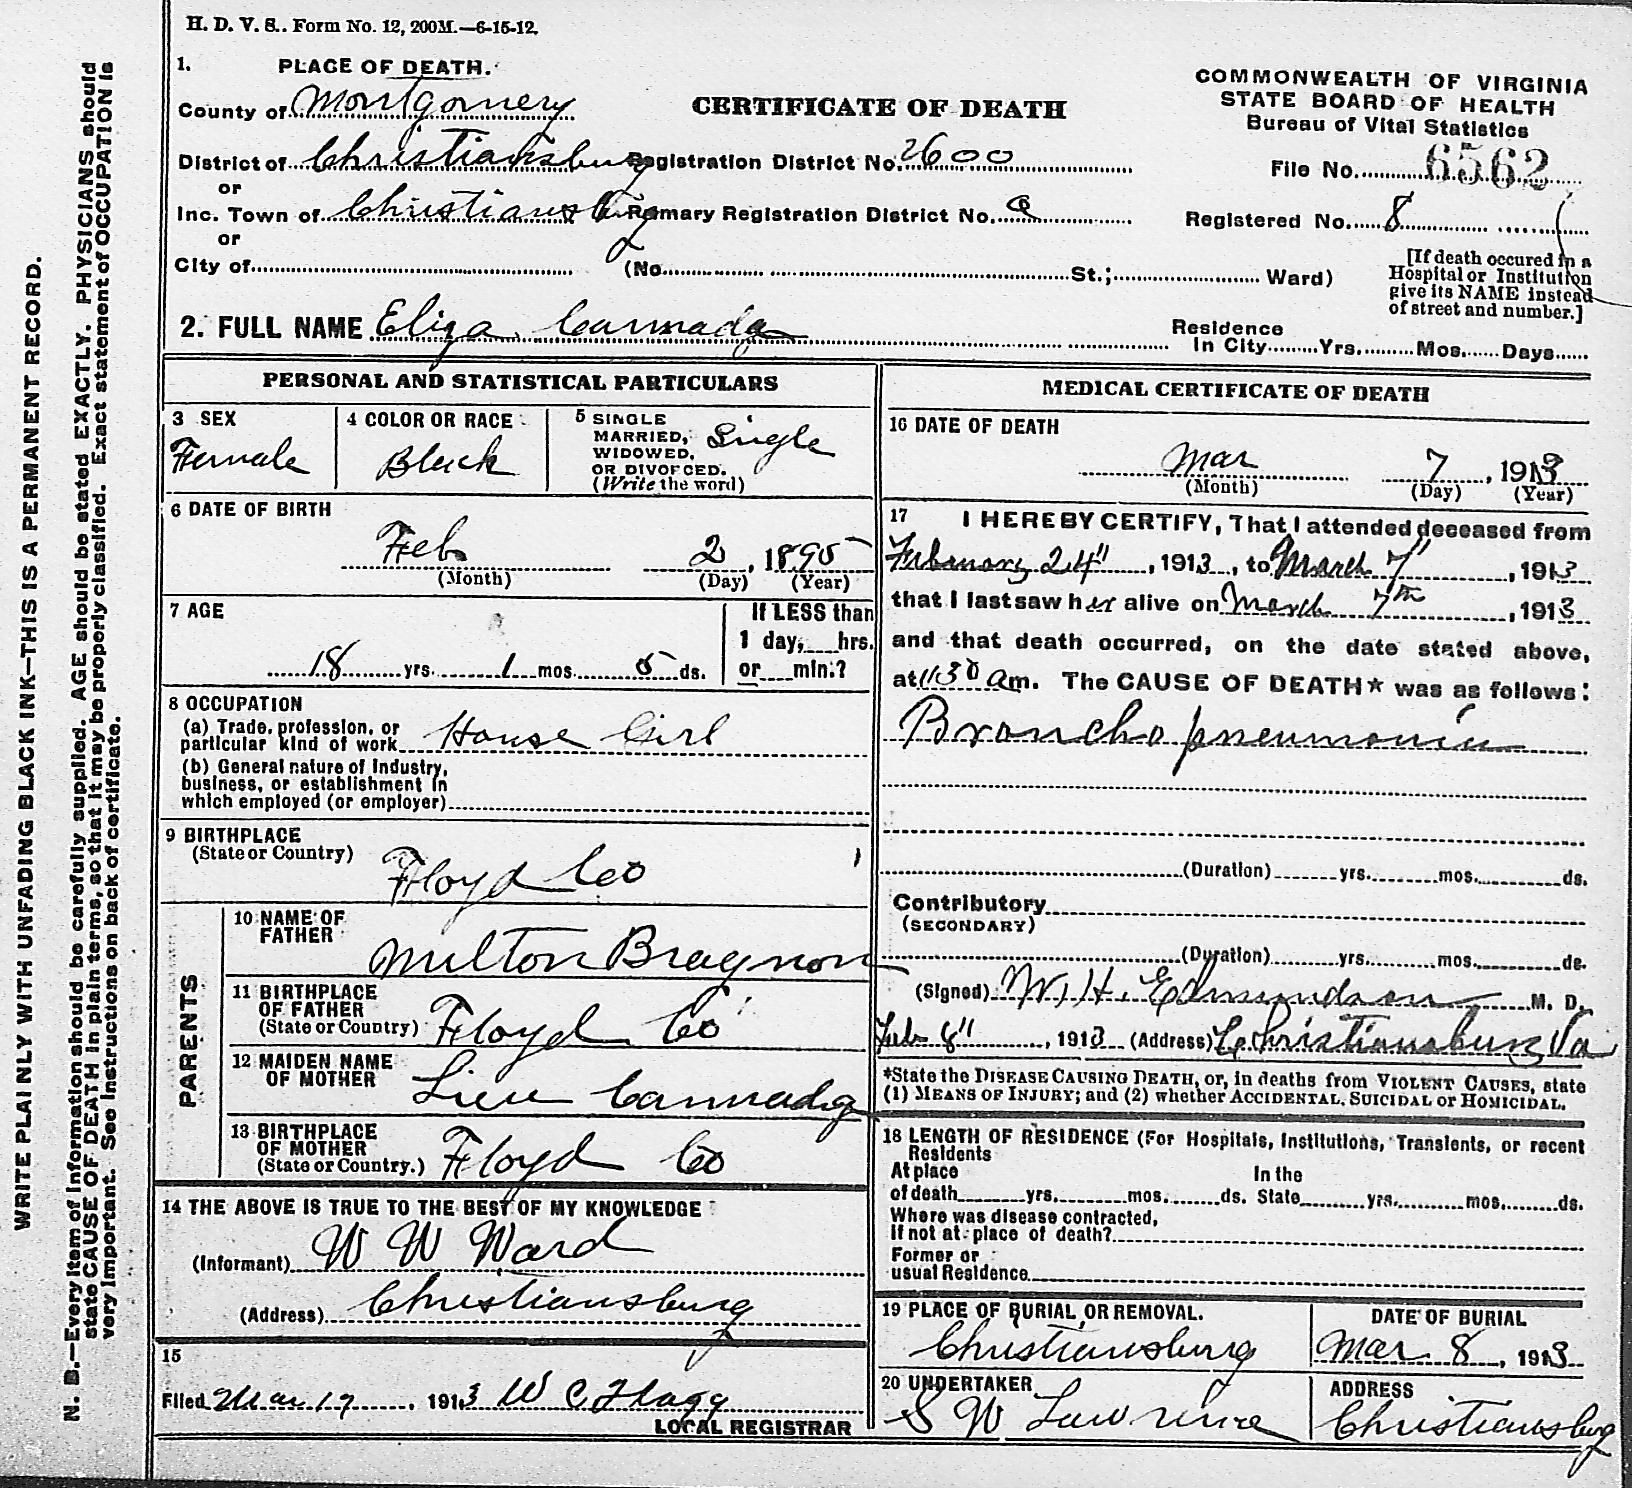 H. D. V. S.. Form No. 12, 200M.—6-15-12.
1. PLACE OF DEATH.
County of Montgomery
District of Christiansburg
or
Inc. Town of Christiansburg
or
City of
CERTIFICATE OF DEATH
Registration District No. 2600
Primary Registration District No.
(No. St.; Ward)
COMMONWEALTH OF VIRGINIA
STATE BOARD OF HEALTH
Bureau of Vital Statistics
File No. 6562
Registered No. 8
[If death occured in a
Hospital or Institution
give its NAME instead
of street and number.]
2. FULL NAME Eliza Cannaday
Residence
In City Yrs. Mos. Days
PERSONAL AND STATISTICAL PARTICULARS
3 SEX
Female
4 COLOR OR RACE
Black
5 SINGLE
MARRIED,
WIDOWED,
OR DIVORCED.
(Write the word)
Single
6 DATE OF BIRTH
Feb 2, 1895
(Month) (Day) (Year)
7 AGE
18 yrs. 1 mos. 5 ds.
If LESS than
1 day, hrs.
or min.?
8 OCCUPATION
(a) Trade, profession, or
particular kind of work House Girl
(b) General nature of Industry,
business, or establishment in
which employed (or employer)
9 BIRTHPLACE
(State or Country)
Floyd Co
PARENTS
10 NAME OF
FATHER
Milton
11 BIRTHPLACE
OF FATHER
(State or Country) Floyd Co
12 MAIDEN NAME
OF MOTHER
Cannaday
13 BIRTHPLACE
OF MOTHER
(State or Country.) Floyd Co
14 THE ABOVE IS TRUE TO THE BEST OF MY KNOWLEDGE
(Informant) W W Ward
(Address) Christiansburg
15
Filed Mar 17, 1913 W C Flagg
LOCAL REGISTRAR
MEDICAL CERTIFICATE OF DEATH
16 DATE OF DEATH
Mar 7, 1913
(Month) (Day) (Year)
17 I HEREBY CERTIFY, That I attended deceased from
February 24", 1913, to March 7", 1913
that I last saw her alive on March 7th, 1913
and that death occurred, on the date stated above,
at 1130 am. The CAUSE OF DEATH* was as follows:
Broncho pneumonia
(Duration) yrs. mos. ds.
Contributory
(SECONDARY)
(Duration) yrs. mos. ds.
(Signed) W. H. Edmundson M. D.
Feb 8", 1913 (Address) Christiansburg Va
*State the DISEASE CAUSING DEATH, or, in deaths from VIOLENT CAUSES, state
(1) MEANS OF INJURY; and (2) whether ACCIDENTAL, SUICIDAL OR HOMICIDAL.
18 LENGTH OF RESIDENCE (For Hospitals, Institutions, Transients, or recent
Residents
At place In the
of death yrs. mos. ds. State yrs. mos. ds.
Where was disease contracted,
If not at place of death?
Former or
usual Residence
19 PLACE OF BURIAL OR REMOVAL.
Christiansburg
DATE OF BURIAL
Mar 8, 1913
20 UNDERTAKER
S W Lawrence
ADDRESS
Christiansburg
WRITE PLAINLY WITH UNFADING BLACK INK—THIS IS A PERMANENT RECORD.
N. B.—Every item of information should be carefully supplied. AGE should be stated EXACTLY. PHYSICIANS should
state CAUSE OF DEATH in plain terms, so that it may be properly classified. Exact statement of OCCUPATION is
very important. See instructions on back of certificate.